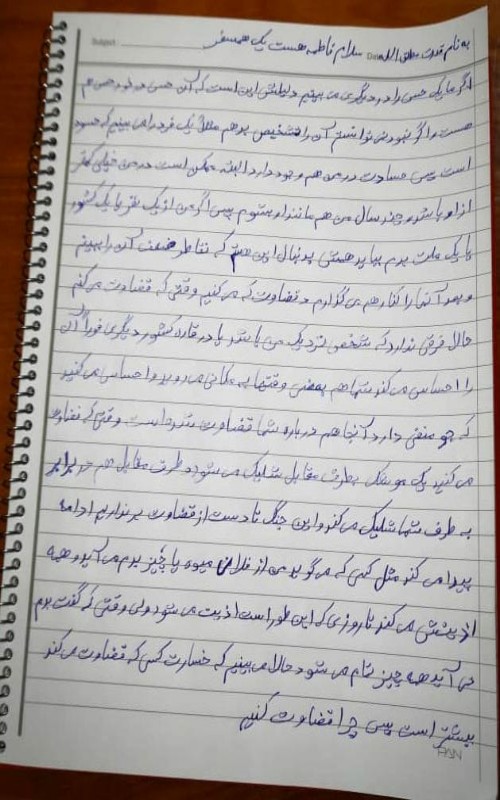 به نام قدرت مطلق الله سلام فاطمه هست یک همسفر
Subject: Date
اگر ما یک حسی را در دیگری می بینیم دلیلش این است که آن حس در خود من هم
هست و اگر نبود نمی توانستم آن را تشخیص بدهم مثلا یک فرد را می بینیم که حسود
است پس حسادت در من هم وجود دارد البته ممکن است در من خیلی کمتر
از او باشد و چند سال من هم مانند او بشوم پس اگر من از یک نفر یا یک کشور
یا یک ملت بدم بیاید همش بدنبال این هستم که نقاط ضعف آن را ببینم
و بعد آنها را کنار هم می گذارم و قضاوت که می کنیم وقتی که قضاوت می کنم
حال فرقی ندارد که شخص نزدیک من باشد یا در قاره کشور دیگری فوراً آن
را احساس می کند شما هم بعضی وقتها به مکانی می روید و احساس می کنید
که جو منفی دارد آنجا هم درباره شما قضاوت شده است وقتی که قضاوت
می کنید یک موشک بطرف مقابل شلیک می شود و طرف مقابل هم در برابر
به طرف شما شلیک می کند و این جنگ تا دست از قضاوت برنداریم ادامه
پیدا می کند مثل کسی که می گوید من از فلان میوه یا چیز بدم می آید و همه
اذیتش می کند تا روزی که این طور است اذیت می شود ولی وقتی که گفت بدم
می آید همه چیز تمام می شود حال می بینیم که خسارت کسی که قضاوت می کند
بیشتر است پس چرا قضاوت کنیم
PAN